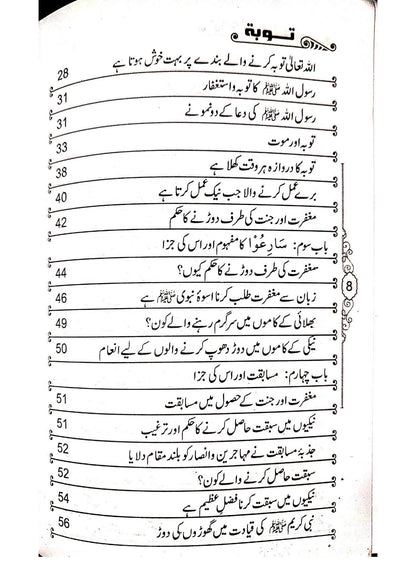 توبة
اللہ تعالیٰ توبہ کرنے والے بندے پر بہت خوش ہوتا ہے 28
رسول اللہ ﷺ کا توبہ و استغفار 31
رسول اللہ ﷺ کی دعا کے دو نمونے 31
توبہ اور موت 33
توبہ کا دروازہ ہر وقت کھلا ہے 38
برے عمل کرنے والا جب نیک عمل کرتا ہے 40
مغفرت اور جنت کی طرف دوڑنے کا حکم 42
باب سوم: سَارِعُوْا کا مفہوم اور اس کی جزا
مغفرت کی طرف دوڑنے کا حکم کیوں؟ 44
زبان سے مغفرت طلب کرنا اسوۂ نبوی ﷺ ہے 46
بھلائی کے کاموں میں سرگرم رہنے والے کون؟ 49
نیکی کے کاموں میں دوڑ دھوپ کرنے والوں کے لیے انعام 50
باب چہارم: مسابقت اور اس کی جزا
مغفرت اور جنت کے حصول میں مسابقت 51
نیکیوں میں سبقت حاصل کرنے کا حکم اور ترغیب 51
جذبۂ مسابقت نے مہاجرین و انصار کو بلند مقام دلایا 52
سبقت حاصل کرنے والے کون؟ 52
نیکیوں میں سبقت کرنا فضلِ عظیم ہے 54
نبی کریم ﷺ کی قیادت میں گھوڑوں کی دوڑ 56
8